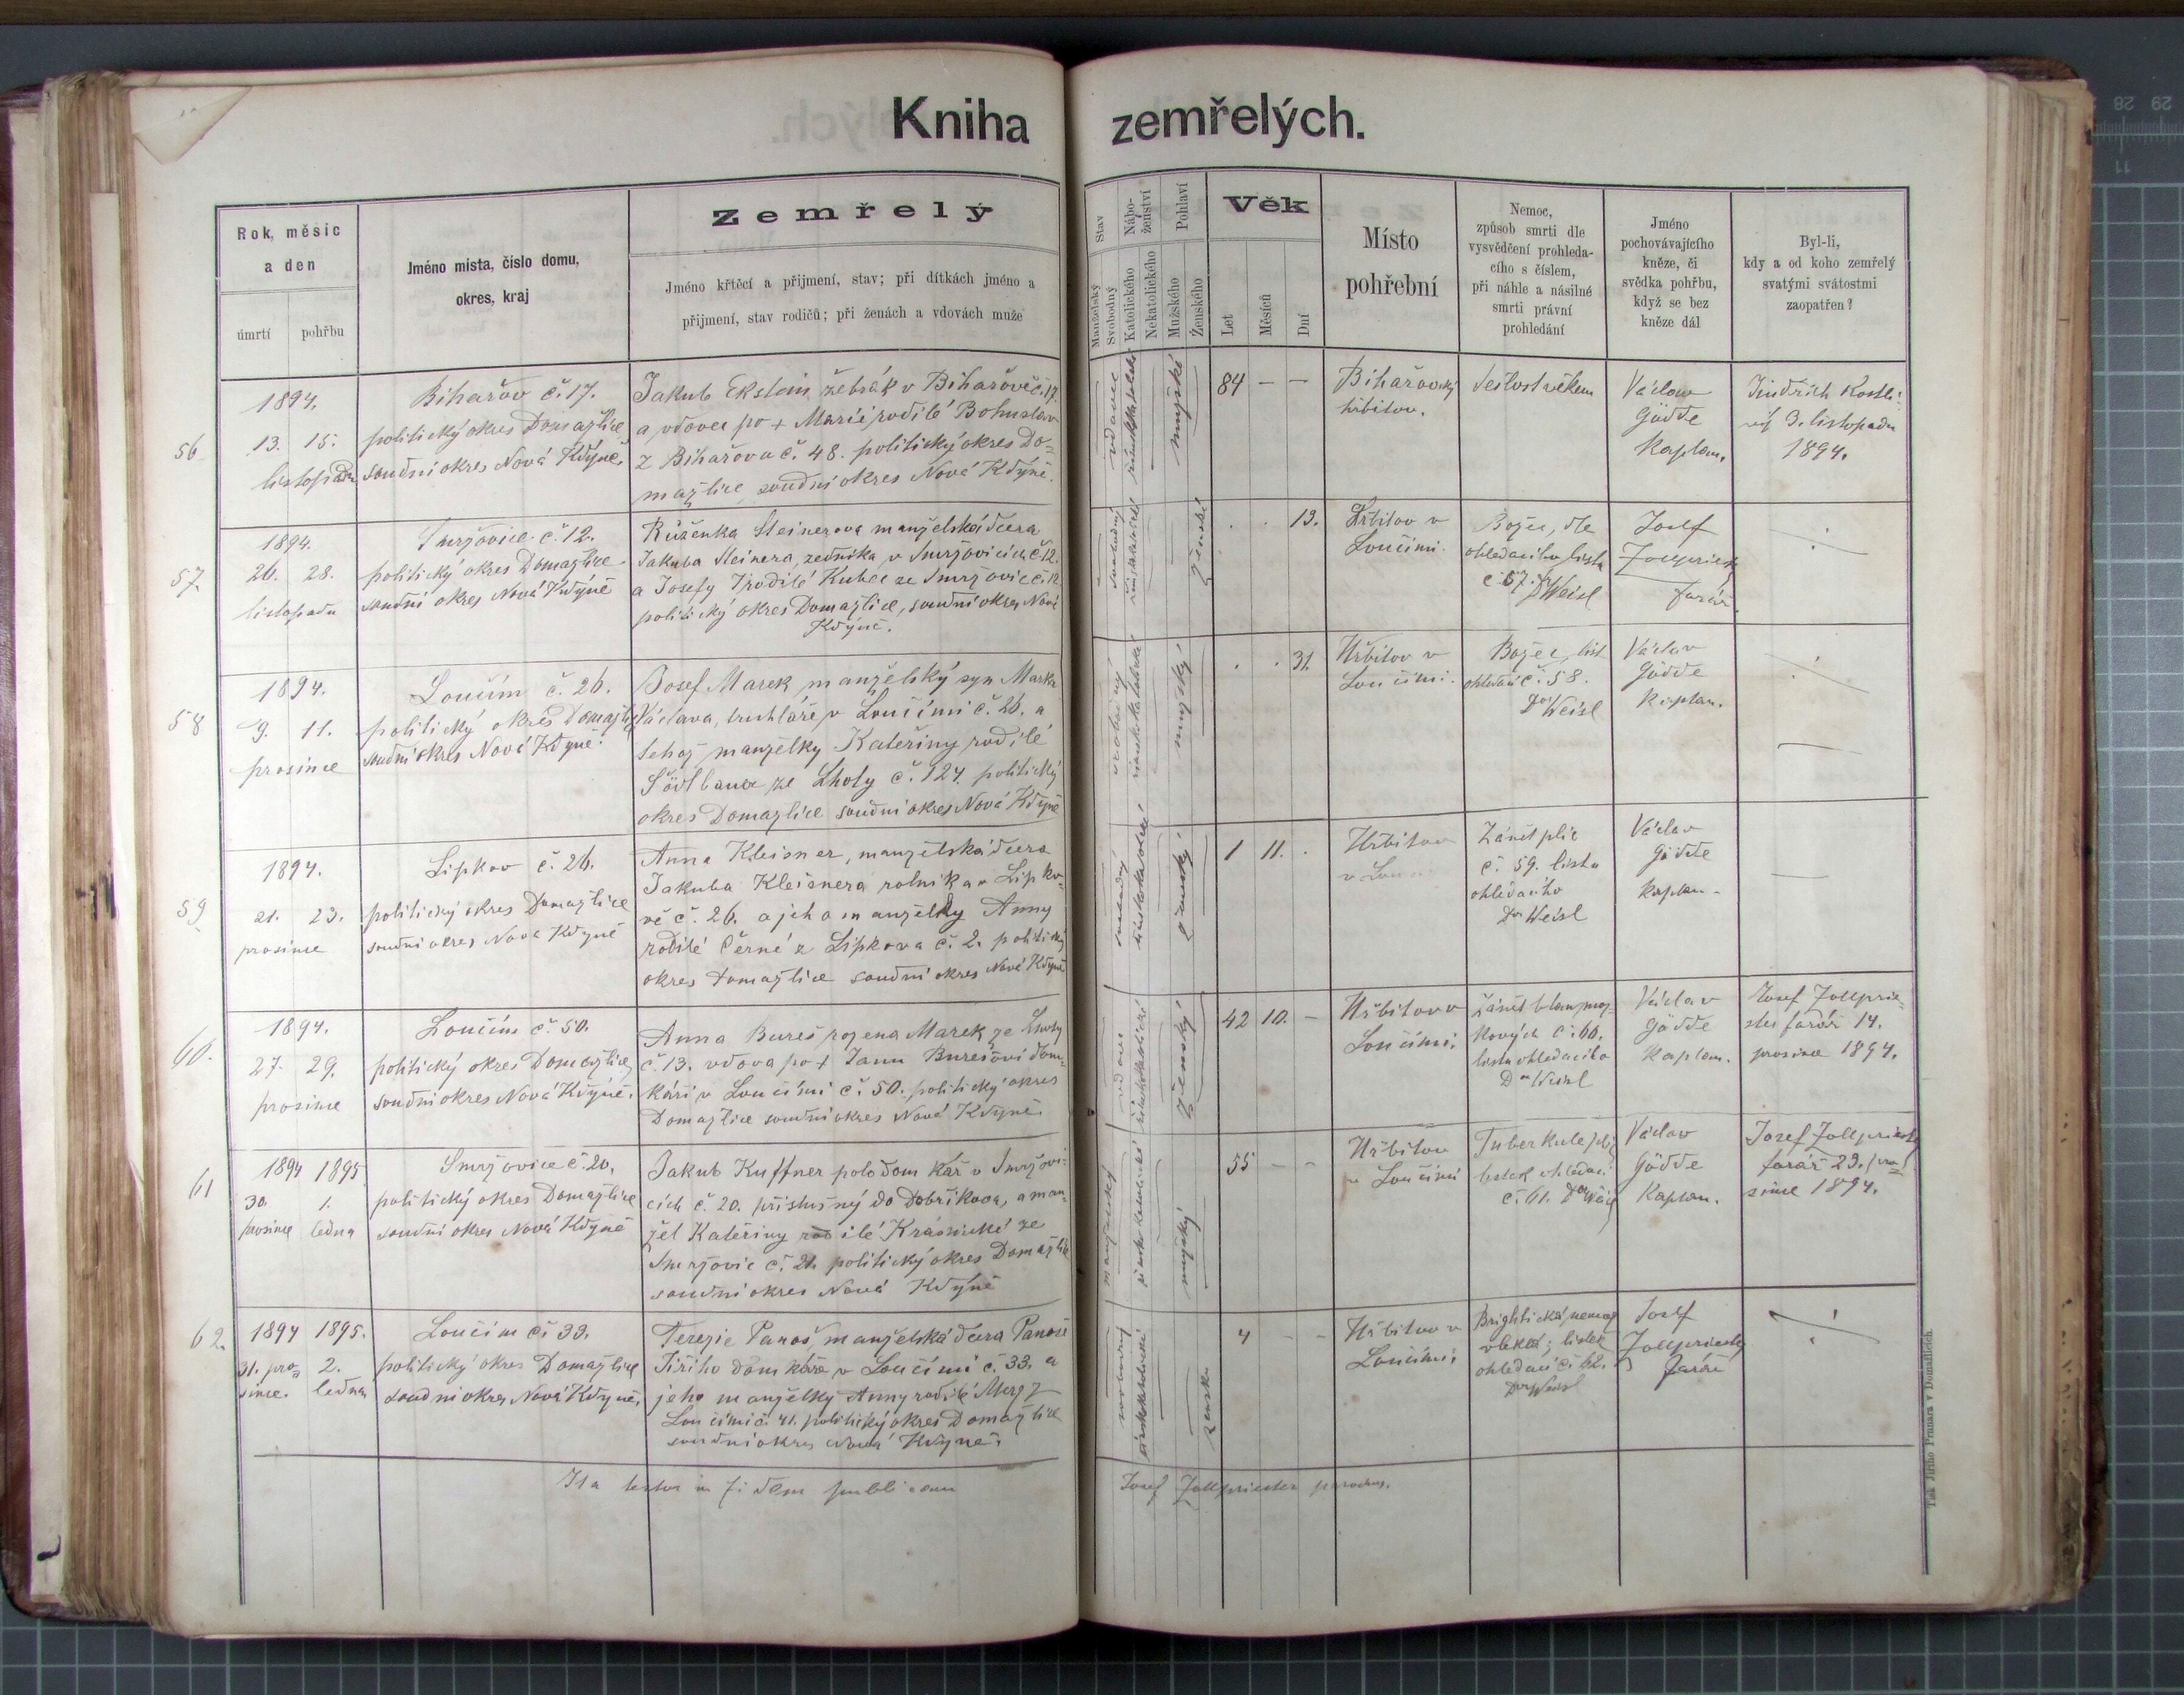 Kniha zemřelých.
Rok, měsíc
a den
úmrtí
pohřbu
Jméno místa, číslo domu,
okres, kraj
Zemřelý
Jméno křtěcí a přijmení, stav; při dítkách jméno a
přijmení, stav rodičů; při ženách a vdovách muže
Stav
Manželský
Svobodný
Nábo-
ženství
Katolického
Nekatolického
Pohlaví
Mužského
Ženského
Věk
Let
Měsíců
Dní
Místo
pohřební
Nemoc,
způsob smrti dle
vysvědčení prohleda-
cího s číslem,
při náhle a násilné
smrti právní
prohledání
Jméno
pochovávajícího
kněze, či
svědka pohřbu,
když se bez
kněze dál
Byl-li,
kdy a od koho zemřelý
svatými svátostmi
zaopatřen?
56
1894.
13. 15.
listopadu
Bihařov č. 17.
politický okres Domažlice
soudní okres Nová Kdýně.
Jakub Ekstein žebrák v Bihařově č. 17.
a vdovec po + Marii rodilé Bohuslav
z Bihařova č. 48. politický okres Do=
mažlice soudní okres Nová Kdýně.
vdovec
mužské
84 — —
Bihařovský
hřbitov.
Sešlost věkem
Václav
Gödde
Kaplan.
Jindřich
3. listopadu
1894.
57.
1894.
26. 28.
listopadu
Smržovice č. 12.
politický okres Domažlice
soudní okres Nová Kdýně
Růženka Steinerova manželská dcera
Jakuba Steinera, zedníka, v Smržovicích č. 12.
a Josefy rodilé Kubec ze Smržovic č. 12
politický okres Domažlice, soudní okres Nová
Kdýně.
svobodný
ženské
. . 13.
Hřbitov v
Loučimi.
Božec, dle
ohledacího listu
č. 57. Dr Weisl
Josef
Zollpriester
farář.
58
1894.
9. 11.
prosince
Loučim č. 26.
politický okres Domažlice
soudní okres Nová Kdyně.
Josef Marek manželský syn Marka
Václava, truhláře v Loučimi č. 26. a
tehož manželky Kateřiny rodilé
ze Lhoty č. 124. politický
okres Domažlice soudní okres Nová Kdyně
svobodný
římskokatolické
mužský
. . 31.
Hřbitov v
Loučimi.
Božec, list
ohledací č. 58.
Dr Weisl
Václav
Gödde
kaplan.
59.
1894.
21. 23.
prosince
Lipkov č. 26.
politický okres Domažlice
soudní okres Nová Kdyně
Anna Kleisner, manželská dcera
Jakuba Kleisnera rolníka v Lipko=
vě č. 26. a jeho manželky Anny
rodilé Černé z Lipkova č. 2. politický
okres Domažlice soudní okres Nová Kdyně
svobodný
římskokatolické
ženský
1 11. .
Hřbitov
v
Zánět plic
č. 59. listu
ohledacího
Dr Weisl
Václav
Gödde
kaplan.
60.
1894.
27. 29.
prosince
Loučim č. 50.
politický okres Domažlice
soudní okres Nová Kdýně.
Anna Bureš rozena Marek ze Lhoty
č. 13. vdova po + Janu Burešovi dom=
káři v Loučimi č. 50. politický okres
Domažlice soudní okres Nová Kdyně.
římskokatolické
ženský
42 10. —
Hřbitov v
Loučimi.
Zánět blan moz=
kových č. 60.
listu ohledacího
Dr Weisl
Václav
Gödde
Kaplan.
Josef Zollprie=
ster farář 14.
prosince 1894.
61
1894 1895
30. 1.
prosince ledna
Smržovice č. 20.
politický okres Domažlice
soudní okres Nová Kdyně
Jakub Kuffner polodomkář v Smržovi=
cích č. 20. příslušný do Dobříkova, a man=
žel Kateřiny rodilé Krásnické ze
Smržovic č. 21. politický okres Domažlice
soudní okres Nová Kdýně
manželský
mužský
55 — —
Hřbitov
v Loučimi
Tuberkule plic
lístek ohledací
č. 61. Dr Weisl
Václav
Gödde
Kaplan.
Josef Zollpriester
farář 29. pro=
since 1894.
62.
1894 1895.
31. pro= 2.
since. ledna
Loučim č. 33.
politický okres Domažlice
soudní okres Nová Kdyně.
Terezie Panoš, manželská dcera Panoše
Jiřího domkáře v Loučimi č. 33. a
jeho manželky Anny rodilé z
Loučimi č. 41. politický okres Domažlice
soudní okres Nová Kdyně.
svobodný
římskokatolické
ženská
4 — —
Hřbitov v
Loučimi.
Brightická nemoc
lístek
ohledací č. 62.
Dr Weisl
Josef
Zollpriester
farář
Ita testor in fidem publicam
Josef Zollpriester parochus.
Tisk Jiřího Prunara v Domažlicích.